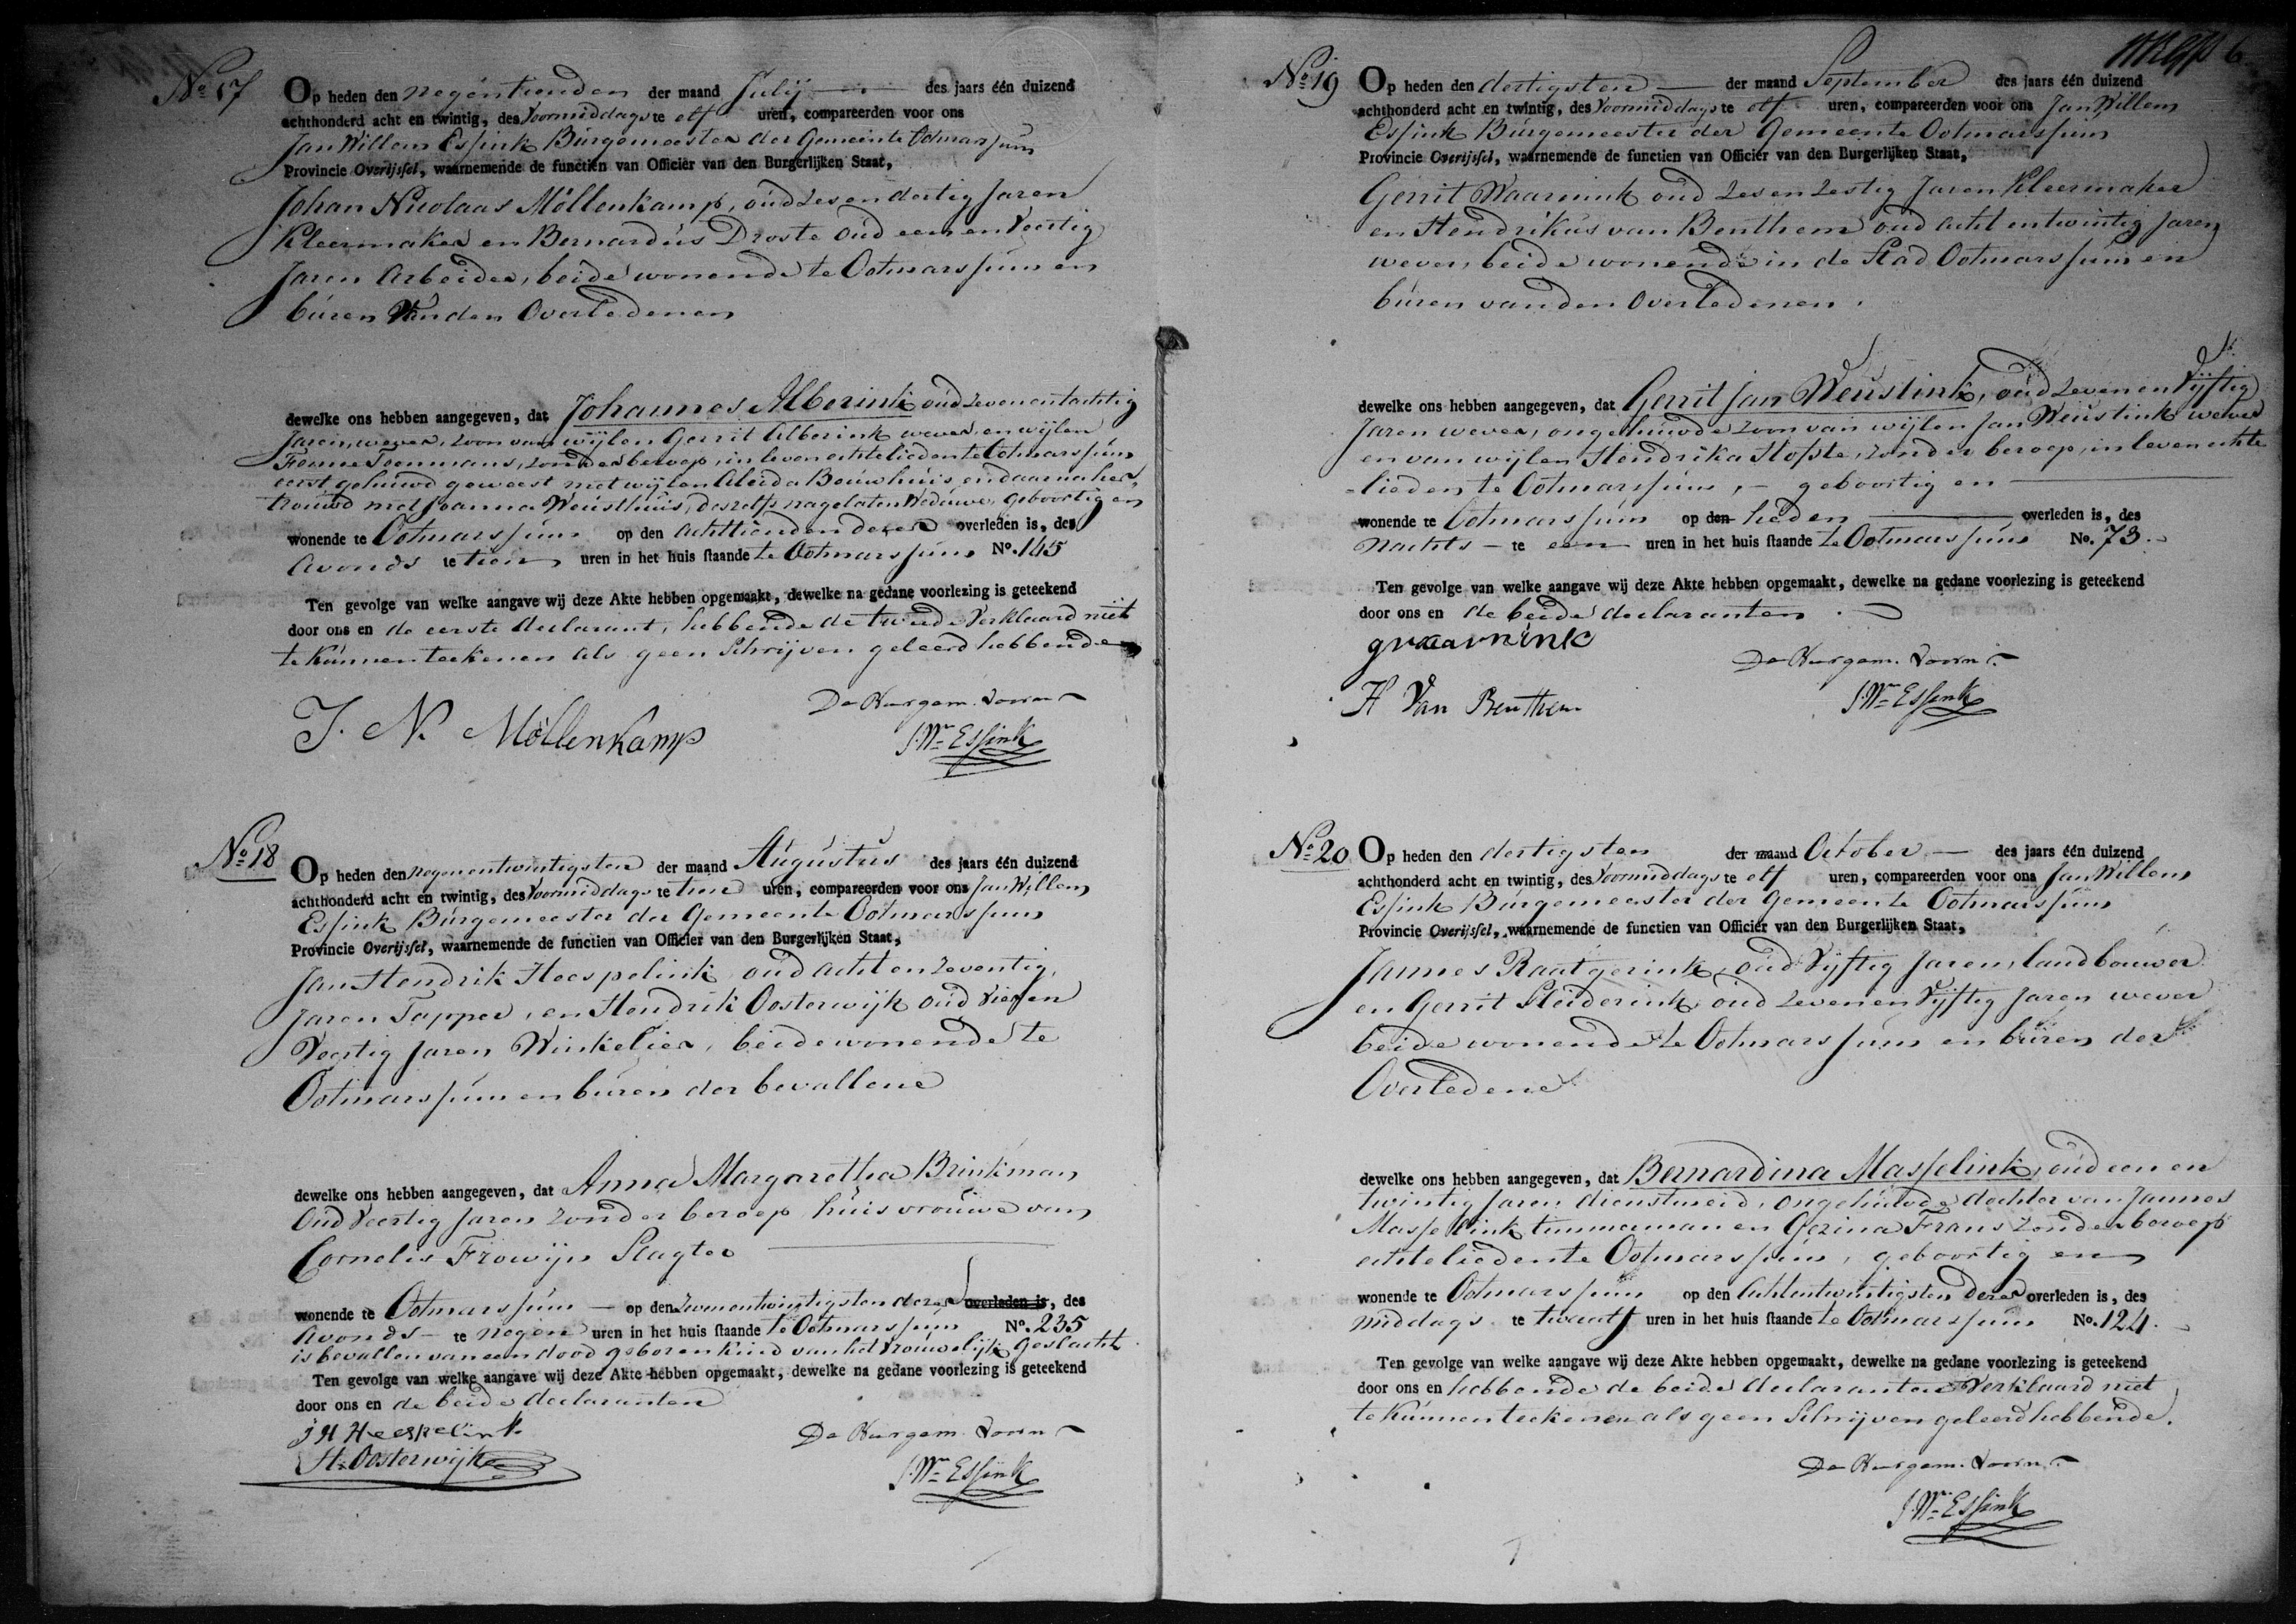 No 17
Op heden den negentienden der maand Julij des jaars één duizend
achthonderd acht en twintig, des Voormiddags te elf uren, compareerden voor ons
Jan Willem Essink Burgemeester der Gemeente Ootmarssum
Provincie Overijssel, waarnemende de functien van Officier van den Burgerlijken Staat,
Johan Nicolaas Möllenkamp, oud zes en dertig Jaren
Kleermaker en Bernardus Droste oud een en Veertig
Jaren Arbeider, beide wonende te Ootmarssum en
buren van den Overledenen
dewelke ons hebben aangegeven, dat Johannes Alberink oud zeven en tachtig
Jaren, wever, zoon van wijlen Gerrit Alberink wever, en wijlen
Fenne Toenmans, zonder beroep, in leven echtelieden te Ootmarssum
eerst gehuwd geweest met wijlen Aleida Bouwhuis, en daarna her,,
trouwd met Joanna Weusthuis, deszelfs nagelaten Weduwe, geboortig en
wonende te Ootmarssum op den achttienden dezer overleden is, des
Avonds te tien uren in het huis staande te Ootmarssum No. 145
Ten gevolge van welke aangave wij deze Akte hebben opgemaakt, dewelke na gedane voorlezing is geteekend
door ons en de eerste declarant, hebbende de tweede Verklaard niet
te kunnen teekenen als geen Schrijven geleerd hebbende
J. N. Möllenkamp
De Burgem. voorn
J. Wm Essink
No 18
Op heden den negenentwintigsten der maand Augustus des jaars één duizend
achthonderd acht en twintig, des Voormiddags te tien uren, compareerden voor ons Jan Willem
Essink Burgemeester der Gemeente Ootmarssum
Provincie Overijssel, waarnemende de functien van Officier van den Burgerlijken Staat,
Jan Hendrik Heespelink oud acht en zeventig
Jaren Tapper, en Hendrik Oosterwijk oud vier en
Veertig Jaren Winkelier, beide wonende te
Ootmarssum en buren der bevallene
dewelke ons hebben aangegeven, dat Anna Margaretha Brinkman
Oud Veertig Jaren zonder beroep huisvrouwe van
Cornelis Frowijn Slagter
wonende te Ootmarssum op den zevenentwintigsten dezer overleden is, des
Avonds te negen uren in het huis staande te Ootmarssum No. 235
is bevallen van een dood geboren kind van het Vrouwelijk Geslacht
Ten gevolge van welke aangave wij deze Akte hebben opgemaakt, dewelke na gedane voorlezing is geteekend
door ons en de beide declaranten
J H Heespelink
H. Oosterwijk
De Burgem. voorn
J. Wm Essink
6
No 19
Op heden den dertigsten der maand September des jaars één duizend
achthonderd acht en twintig, des Voormiddags te elf uren, compareerden voor ons Jan Willem
Essink Burgemeester der Gemeente Ootmarssum
Provincie Overijssel, waarnemende de functien van Officier van den Burgerlijken Staat,
Gerrit Waarnink oud zes en zestig Jaren Kleermaker
en Hendrikus van Benthem oud acht en twintig Jaren
wever, beide wonende in de Stad Ootmarssum en
buren van den Overledenen.
dewelke ons hebben aangegeven, dat Gerrit Jan Weustink, oud zeven en Vijftig
Jaren wever, ongehuwde zoon van wijlen Jan Weustink wever
en van wijlen Hendrika Hofste, zonder beroep, in leven echte
-lieden te Ootmarssum, - geboortig en
wonende te Ootmarssum op den heden overleden is, des
Nachts te een uren in het huis staande te Ootmarssum No. 73.
Ten gevolge van welke aangave wij deze Akte hebben opgemaakt, dewelke na gedane voorlezing is geteekend
door ons en de beide declaranten.
gwaarnink
H Van Benthem
De Burgem. voorn.
J. Wm Essink
No 20
Op heden den dertigsten der maand October des jaars één duizend
achthonderd acht en twintig, des Voormiddags te elf uren, compareerden voor ons Jan Willem
Essink Burgemeester der Gemeente Ootmarssum
Provincie Overijssel, waarnemende de functien van Officier van den Burgerlijken Staat,
Jannes Raatgerink, oud Vijftig Jaren, landbouwer
en Gerrit Sleiderink, oud zeven en Vijftig Jaren wever
beide wonende te Ootmarssum en buren der
Overledene
dewelke ons hebben aangegeven, dat Bernardina Masselink, oud een en
twintig Jaren dienstmeid, ongehuwde dochter van Jannes
Masselink timmerman en Gezina Frans zonder beroep
echtelieden te Ootmarssum, geboortig en
wonende te Ootmarssum op den Achtentwintigsten dezer overleden is, des
middags te twaalf uren in het huis staande te Ootmarssum No. 124.
Ten gevolge van welke aangave wij deze Akte hebben opgemaakt, dewelke na gedane voorlezing is geteekend
door ons en hebbende de beide declaranten Verklaard niet
te kunnen teekenen als geen Schrijven geleerd hebbende.
De Burgem. voorn.
J. Wm Essink